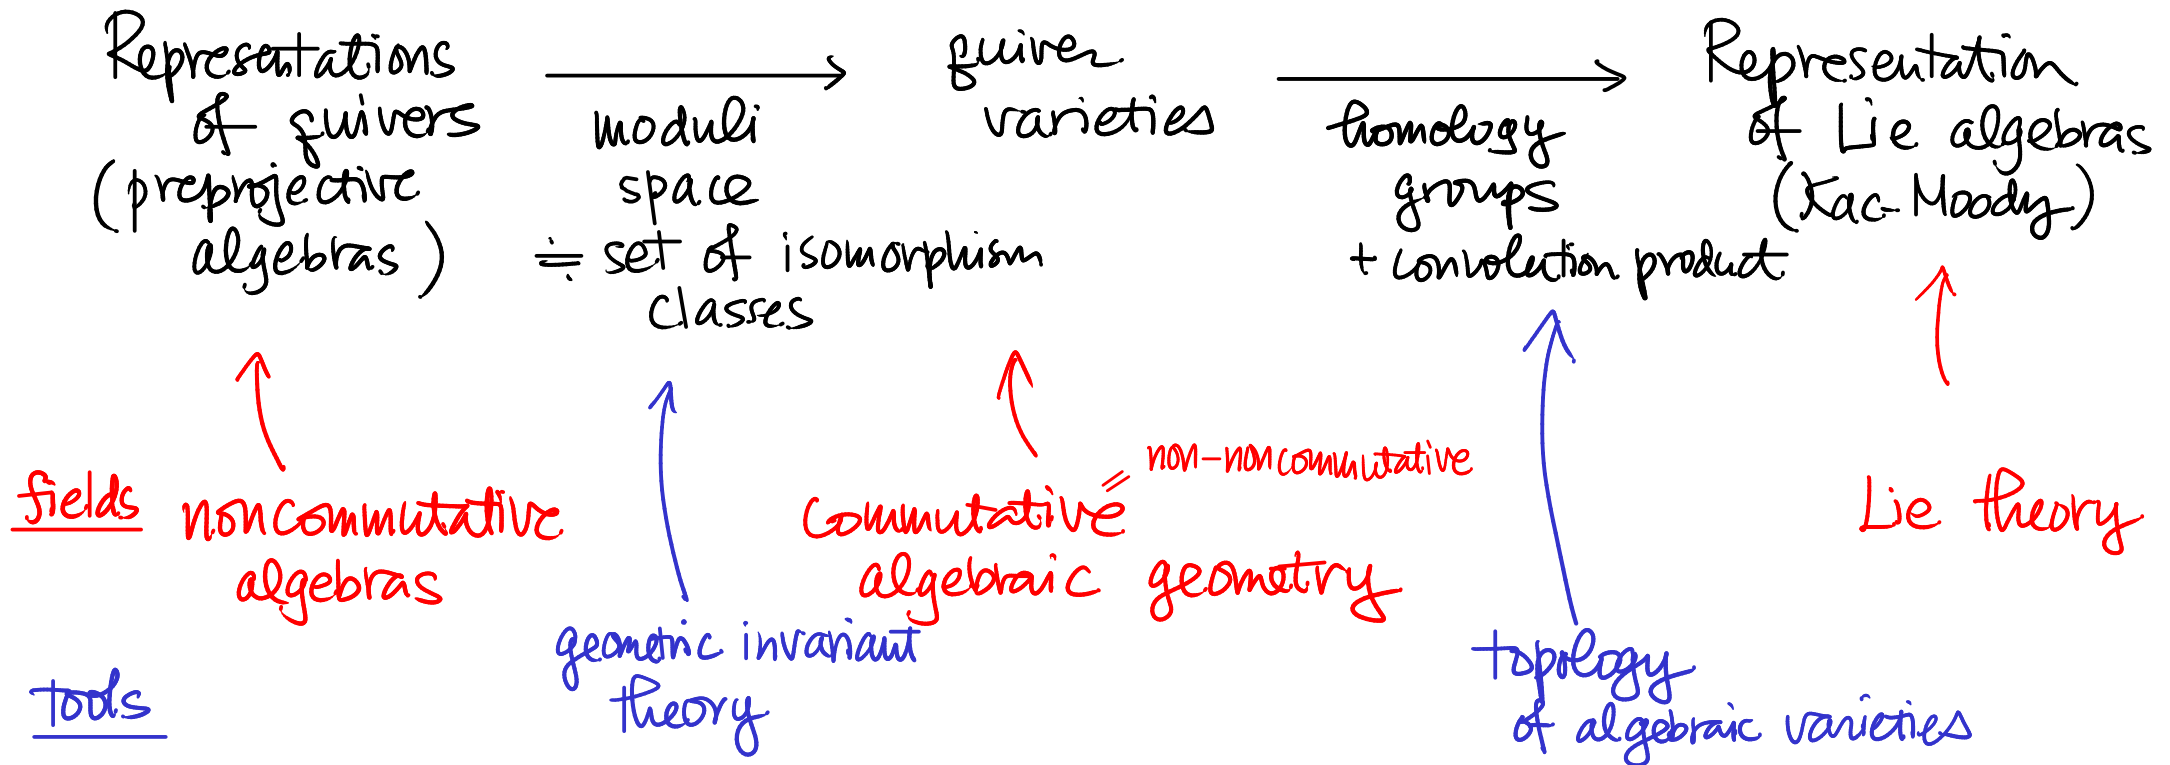 Representations
of quivers
(preprojective
algebras)
moduli
space
≒ set of isomorphism
classes
quiver
varieties
homology
groups
+ convolution product
Representation
of Lie algebras
(Kac-Moody)
fields
noncommutative
algebras
commutative
= non-noncommutative
algebraic geometry
Lie theory
tools
geometric invariant
theory
topology
of algebraic varieties